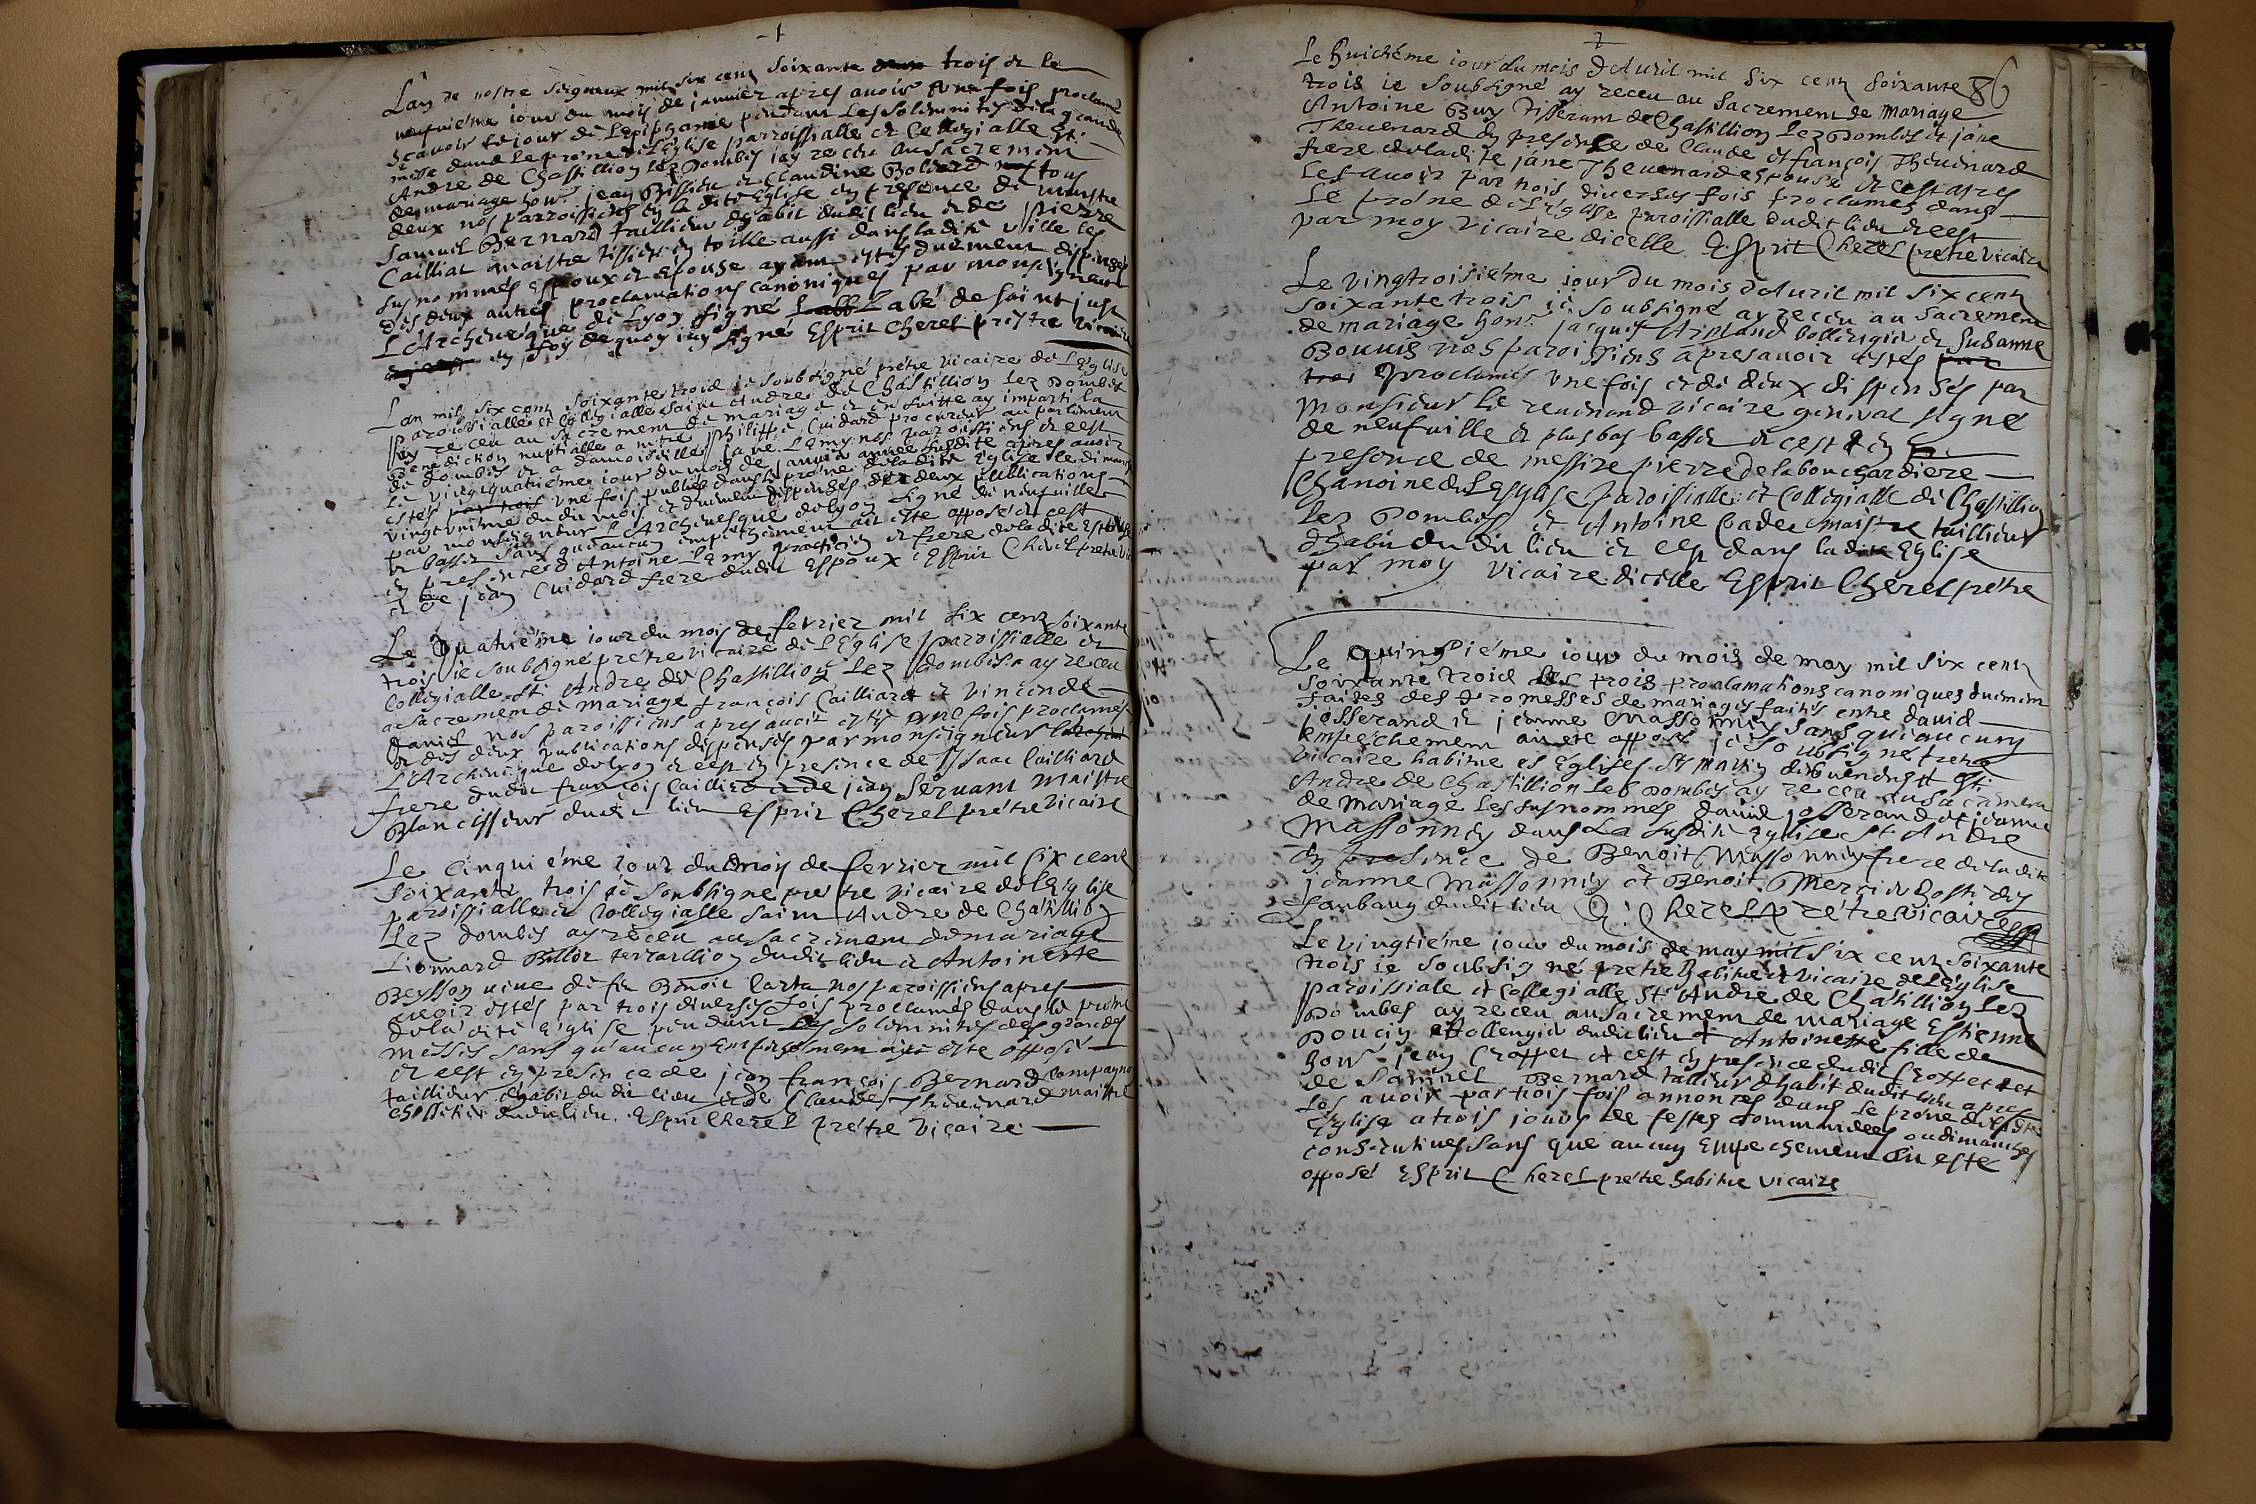 L'an de nostre seigneur mil six cent soixante trois et le
neufuiéme iour du mois de januier apres auoir une fois proclamé
scauoir le jour de L'epiphanie pendant Les solemnités de la grande
messe dans Le prône de L'eglise parroissialle et Collegialle St
Andre de Chastillion lez Dombes iay receu au sacrement
de mariage hon. jean Brissieu et Claudine Boliard tous
deux nos parroissiens en la dite Eglise en presence de maistre
Samuel Bernard taillieur d'habit dudit lieu et de pierre
Cailliat maistre tissier en toille aussi dans ladite ville les
susnommés Espoux et Espouse ayant estés duëment dispensés
des deux autres proclamations canoniques par monseigneur
L'Archeuéque de Lyon signé L'abé de saint just
en foy de quoy iay signé Esprit Cherel prestre vicaire
L'an mil six cent soixante trois ie soubsigné prétre vicaire de L'Eglise
paroissialle et Collegialle saint Andre de Chastillion lez Dombes
ay receu au sacrement de mariage et en suitte ay imparti la
Benediction nuptialle a mitre philippe Cuidard procureur au parlement
de dombes et a damoiselle jane Lemy nos paroissiens et cest
Le vingtquatriéme jour du mois de januier année susdite apres auoir
estés par trois une fois publiés dans le prône de la dite Eglise le dimanche
vingtuniéme du dit mois et duëment dispensés des deux publications
par monseigneur L'Archeuesque de Lyon signé de neufuille
et basset sans que aucun empéchement ait esté opposé et cest
en presence d'Antoine Lemy practicien et frere de ladite Espouse
et de jean Cuidard frere dudit Espoux Esprit Cherel prétre vic
Le Quatriéme iour du mois de feurier mil six cent soixante
trois ie soubsigné prétre vicaire de L'Eglise paroissialle et
Collegialle St Andre de Chastillion Lez dombes ay receu
au sacrement de mariage françois Cailliard et vincende
Daniel nos paroissiens apres auoir estés une fois proclamés
et des deux publications dispensés par monseigneur
L'Archeueque de Lyon et cest en presence de Isaac Cailliard
frere dudit françois Cailliard et de jean Seruant maistre
Blancisseur dudit lieu Esprit Cherel prétre vicaire
Le Cinquiéme iour du moy de feurier mil six cent
soixante trois ie soubsigné prétre vicaire de l'Eglise
paroissialle et Collegialle saint Andre de Chatillion
Lez dombes ay receu au sacrement de mariage
Lionnard Billot terraillion dudit lieu et Antoinette
Beysson uiue de feu Benoit Carta nos paroissiens apres
auoir estés par trois diuerses fois proclamés dans le prône
de la dite Eglise pendant les solemnités des grandes
messes sans qu'aucun empeschement ait esté opposé
et cest en presence de jean françois Bernard compagnon
taillieur d'habit du dit lieu et de Claude Theuenard maistre
dudit lieu. Esprit Cherel prétre vicaire
86
Le huictiéme iour du mois d'Auril mil six cent soixante
trois ie soubsigné ay receu au sacrement de mariage
Antoine Buy Tisserant de Chastillion Lez Dombes et jane
Theuenard en presence de Claude et françois Theuenard
frere de ladite jane Theuenard espouse et cest apres
Les auoir par trois diuerses fois proclamés dans
Le prône de L'Eglise paroissialle dudit lieu et cest
par moy vicaire dicelle Esprit Cherel prétre vicaire
Le vingtroisiéme iour du mois d'Auril mil six cent
soixante trois ie soubsigné ay receu au sacrement
de mariage hon. jacques Armand bollengier et Susanne
Bouuis nos paroissiens apres auoir estés par
trois proclamés une fois et de deux dispensés par
Monsieur le reuerend vicaire general signé
de neufuille et plus bas basset et cest en
presence de messire pierre de la boucardiere
Chanoine de L'esglise paroissialle et Collegialle de Chastillion
Lez Dombes et Antoine Cadet maistre taillieur
d'habit du dit lieu et cest dans la dite Eglise
par moy vicaire dicelle Esprit Cherel prétre
Le quinziéme iour du mois de may mil six cent
soixante trois les trois proclamations canoniques duëment
faites des promesses de mariages faites entre dauid
josserand et jeanne Massonney sans qu'aucun
empéchement ait eté opposé ie soubsigné pretre
vicaire habitué es Eglises St Martin de buenens et St
Andre de Chastillion Lez Dombes ay receu au sacrement
de mariage les susnommés dauid josserand et jeanne
Massonney dans La susdite Eglise St Andre
en presence de Benoit Massonney frere de la dite
jeanne Massonney et Benoit Mercier hoste des
fauxbourg dudit lieu Cherel prétre vicaire
Le vingtiéme iour du mois de may mil six cent soixante
trois ie soubsigné pretre habitué et vicaire de L'Eglise
paroissiale et Collegialle St Andre de Chatillion Lez
Dombes ay receu au sacrement de mariage Estienne
Poucin Bollengier dudit lieu et Antoinette fille de
hon. jean Croppet et cest en presence dudit Croppet et
de Samuel Bernard tallieur d'habit dudit lieu apres
Les auoir par trois fois annoncés dans Le prône de la dite
Eglise a trois jours de festes commandées ou dimanches
consecutiues sans que aucun Empechement ait esté
opposé Esprit Cherel prétre habitué vicaire